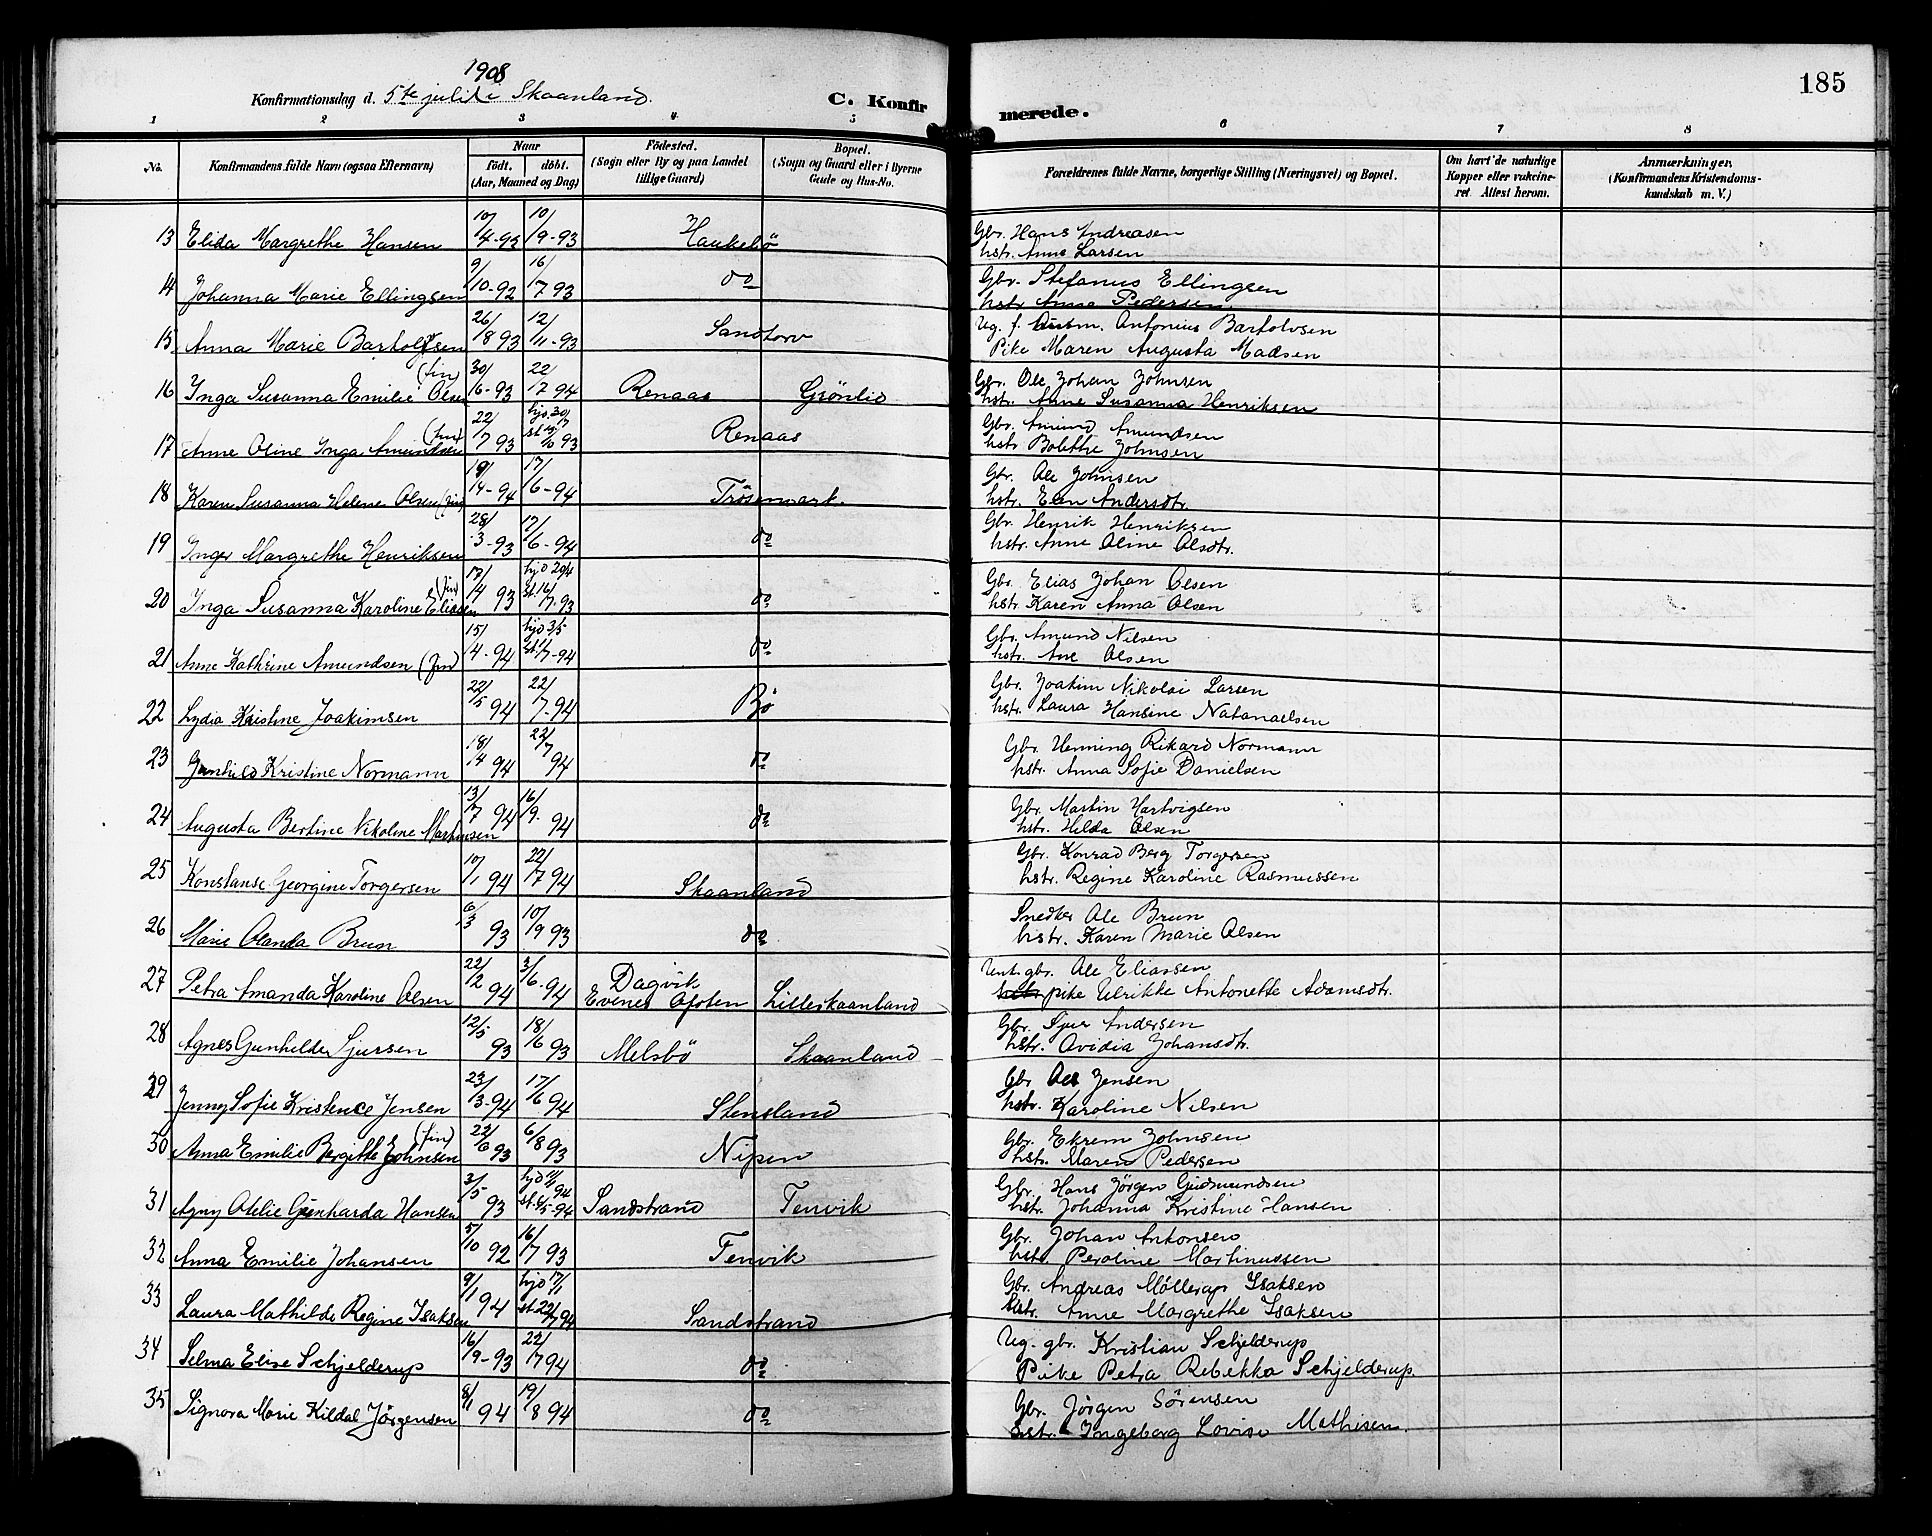 1908
Konfirmationsdag d. 5te juli i Skaanland. C. Konfir
merede. 185
1 2 3 4 5 6 7 8
No. Konfirmandens fulde Navn (ogsaa Efternavn) Naar Födested. Bopæl. Forældrenes fulde Navne, borgerlige Stilling (Næringsvei) og Bopæl. Om havt de naturlige Anmærkninger.
födt. döbt. (Sogn eller By og paa Landet (Sogn og Gaard eller i Byerne Kopper eller vakcine- (Konfirmandens Kristendoms-
(Aar, Maaned og Dag) tillige Gaard) Gade og Hus-No. ret. Attest herom. kundskab m. V.)
13 Elida Margrethe Hansen 10/4-93 10/9-93 Haukebö Gbr. Hans Andreasen
hstr. Anne Larsen
14 Johanna Marie Ellingsen 9/10-92 16/7 93 do Gbr. Stefanus Ellingsen
hstr. Anna Pedersen
15 Anna Marie Bartolfsen 26/8 93 12/11-93 Sandtorv Ug. f. Antonius Bartolvsen
Pike Maren Augusta Madsen
16 Inga Susanna Emilie Olsen (fin) 30/6-93 22/7 94 Renaas Grönlid Gbr. Ole Johan Johnsen
hstr. Anne Susanna Henriksen
17 Anne Oline Inga Amundsen (fin) 22/7 93 hjd. 30/7 st. 10/10 93 Renaas Gbr. Amund Amundsen
hstr. Bolethe Johnsen
18 Karen Susanna Helene Olsen (fin) 19/4-94 17/6-94 Trösemark. Gbr. Ole Johnsen
hstr. Elen Andersdtr.
19 Inger Margrethe Henriksen 28/3-93 17/6-94 do Gbr. Henrik Henriksen
hstr. Anne Oline Olsdtr.
20 Inga Susanna Karoline Eliasen (fin) 17/4 93 hjd 20/4 st. 16/7-93 do Gbr. Elias Johan Olsen
hstr. Karen Anna Olsen
21 Anne Kathrine Amundsen (fin) 15/4-94 hjd 3/5 st. 1/7-94 do Gbr. Amund Nilsen
hstr. Ane Olsen
22 Lydia Kristine Joakimsen 22/5 94 22/7-94 Bö Gbr. Joakim Nikolai Larsen
hstr. Laura Hansine Natanaelsen
23 Gunhild Kristine Normann 18/4 94 22/7 94 do Gbr. Henning Rikard Normann
hstr. Anna Sofie Danielsen
24 Augusta Bertine Nikoline Martinsen 13/7 94 16/9. 94 do Gbr. Martin Hartvigsen
hstr. Hilda Olsen
25 Konstanse Georgine Torgersen 10/1 94 22/7 94 Skaanland Gbr. Konrad Berg Torgersen
hstr. Regine Karoline Rasmussen
26 Marie Olanda Brun 6/3 93 10/9 93 do Snedker Ole Brun
hstr. Karen Marie Olsen
27 Petra Amanda Karoline Olsen 22/2 94 3/6. 94 Dagvik Evenes Ofoten Lilleskaanland Unt. gbr. Ole Eliassen
pike Ulrikke Antonette Adamsdtr.
28 Agnes Gunhilde Sjursen 12/5 93 18/6 93 Melsbö Skaanland Gbr. Sjur Andersen
hstr. Ovidia Johansdtr.
29 Jenny Sofie Kristence Jensen 23/3-94 17/6 94 Stensland Gbr Ole Jensen
hstr. Karoline Nilsen
30 Anna Emilie Bergitte Johnsen (fin) 22/6 93 6/8 93 Nipen Gbr. Ekrem Johnsen
hstr. Maren Pedersen
31 Agny Otelie Gunharda Hansen 3/5 93 Sandstrand Tenvik Gbr. Hans Jörgen Gudmundsen
hstr. Johanna Kristine Hansen
32 Anna Emilie Johansen 5/10 92 16/7 93 Tenvik Gbr. Johan Antonsen
hstr. Peroline Martinussen
33 Laura Mathilde Regine Isaksen 9/1 94 hjd 17/1 st. 22/7 94 Sandstrand Gbr. Andreas Möllerup Isaksen
hstr. Anne Margrethe Isaksen
34 Selma Elise Schjelderup 16/9-93 22/7 94 do Ug. gbr. Kristian Schjelderup
Pike Petra Rebekka Schjelderup.
35 Signora Marie Kildal Jörgensen 8/1 94 19/8 94 do Gbr. Jörgen Sörensen
hstr. Ingeborg Lovise Mathisen.